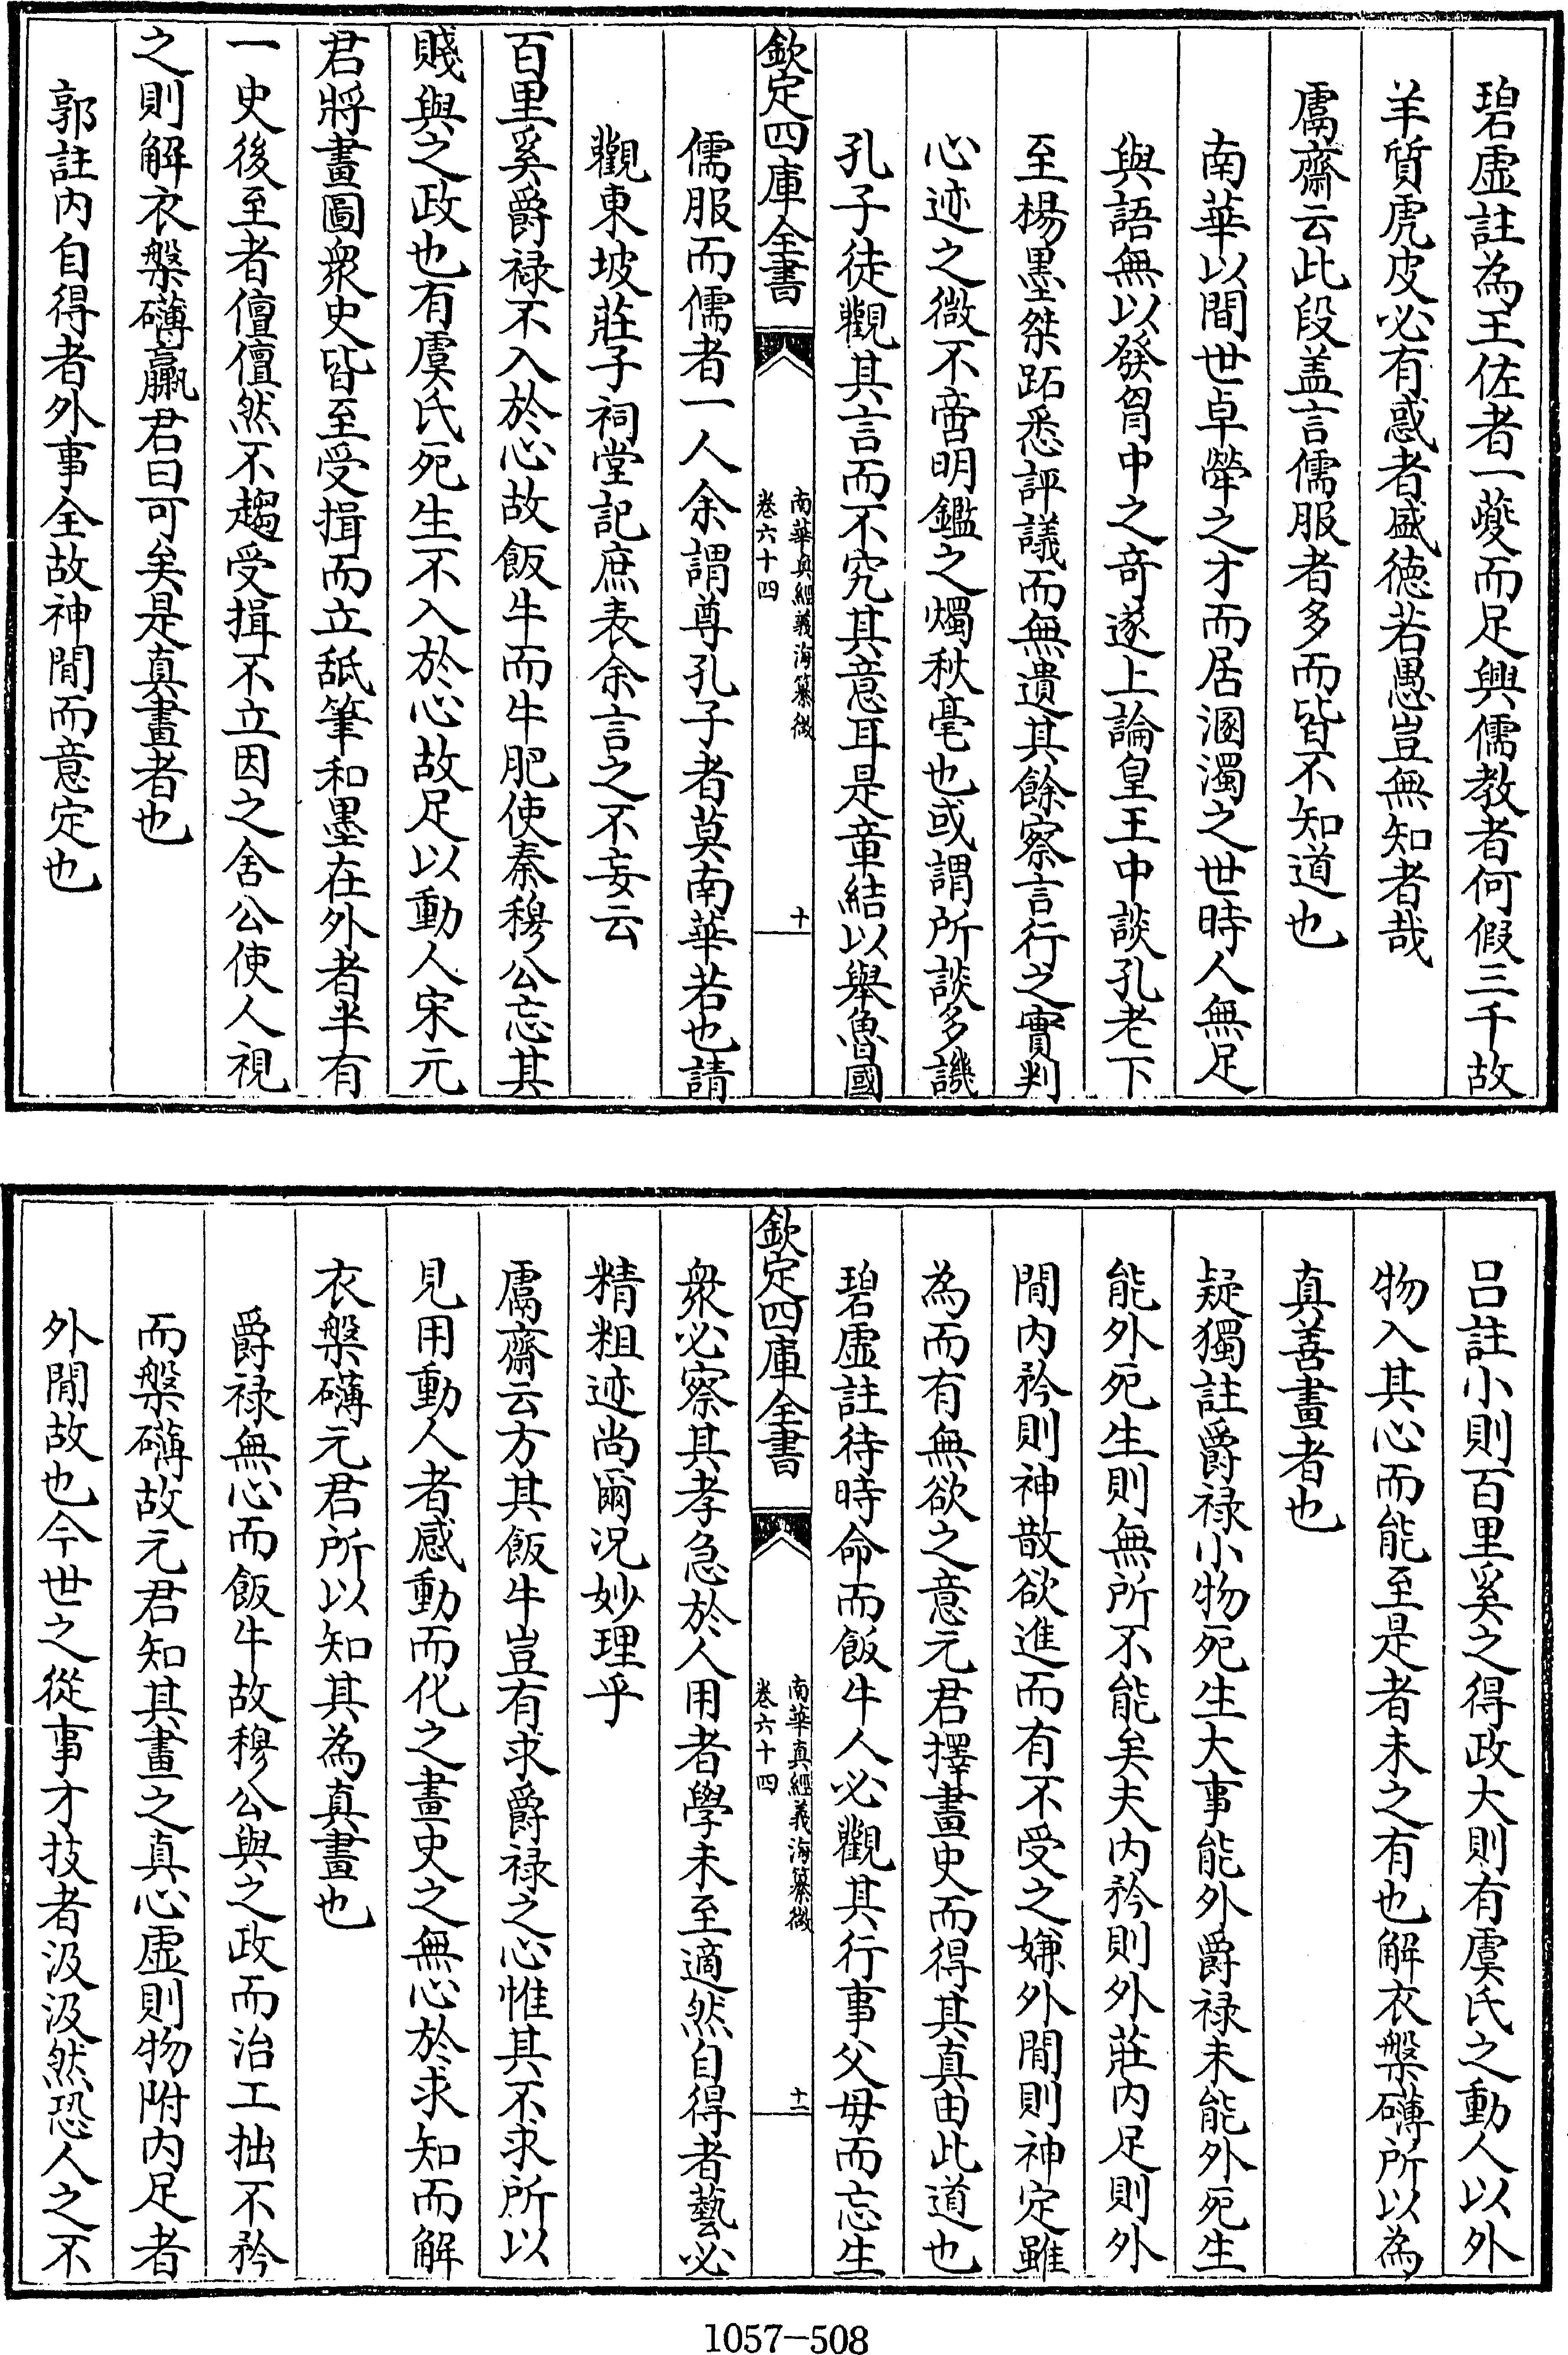 碧虛註為王佐者一夔而足興儒教者何假三千故
羊質虎皮必有惑者盛徳若愚豈無知者哉
鬳齋云此段盖言儒服者多而皆不知道也
南華以間世卓犖之才而居溷濁之世時人無足
與語無以發胷中之竒遂上論皇王中談孔老下
至楊墨桀跖悉評議而無遺其餘察言行之實判
心迹之微不啻明鑑之燭秋毫也或謂所談多譏
孔子徒觀其言而不究其意耳是章結以舉魯國
欽定四庫全書
南華真經義海纂微
卷六十四
十
儒服而儒者一人余謂尊孔子者莫南華若也請
觀東坡莊子祠堂記庶表余言之不妄云
百里奚爵禄不入於心故飯牛而牛肥使秦穆公忘其
賤與之政也有虞氏死生不入於心故足以動人宋元
君將畫圖衆史皆至受揖而立舐筆和墨在外者半有
一史後至者儃儃然不趨受揖不立因之舍公使人視
之則解衣槃礴臝君曰可矣是真畫者也
郭註内自得者外事全故神閒而意定也
呂註小則百里奚之得政大則有虞氏之動人以外
物入其心而能至是者未之有也解衣槃礴所以為
真善畫者也
疑獨註爵禄小物死生大事能外爵禄未能外死生
能外死生則無所不能矣夫内矜則外莊内足則外
閒内矜則神散欲進而有不受之嫌外閒則神定雖
為而有無欲之意元君擇畫史而得其真由此道也
碧虛註待時命而飯牛人必觀其行事父母而忘生
欽定四庫全書
南華真經義海纂微
卷六十四
十一
衆必察其孝急於人用者學未至適然自得者藝必
精粗迹尚爾況妙理乎
鬳齋云方其飯牛豈有求爵禄之心惟其不求所以
見用動人者感動而化之畫史之無心於求知而解
衣槃礴元君所以知其為真畫也
爵禄無心而飯牛故穆公與之政而治工拙不矜
而槃礴故元君知其畫之真心虛則物附内足者
外閒故也今世之從事才技者汲汲然恐人之不
1057-508